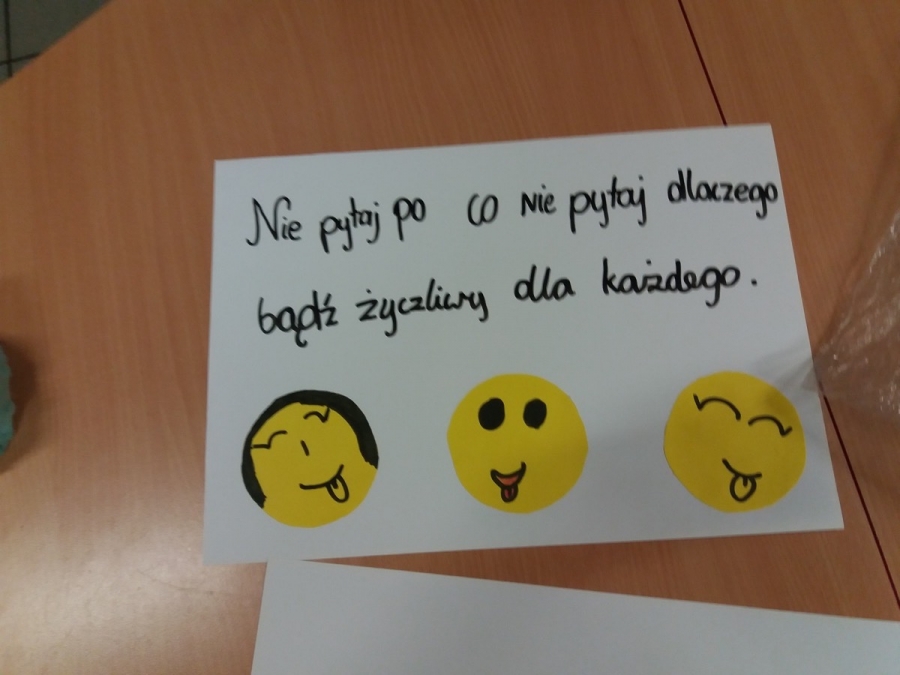 Nie pytaj po co nie pytaj dlaczego
bądź życzliwy dla każdego.